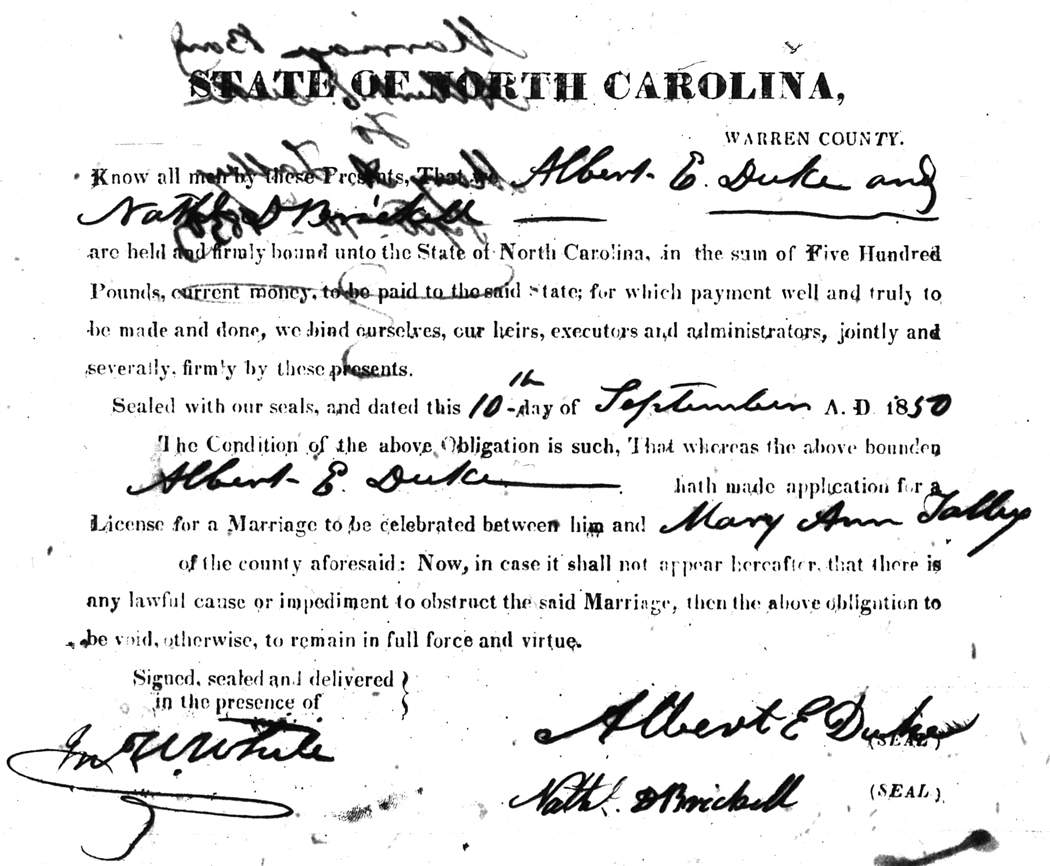 STATE OF NORTH CAROLINA,
WARREN COUNTY.
Know all men by these Presents, That we Albert E. Duke and
D Brickell
are held and firmly bound unto the State of North Carolina, in the sum of Five Hundred
Pounds, current money, to be paid to the said State; for which payment well and truly to
be made and done, we bind ourselves, our heirs, executors and administrators, jointly and
severally, firmly by these presents.
Sealed with our seals, and dated this 10th day of September A. D. 1850
The Condition of the above Obligation is such, That whereas the above bounden
Albert E. Duke hath made application for a
License for a Marriage to be celebrated between him and Mary Ann Talley
of the county aforesaid: Now, in case it shall not appear hereafter, that there is
any lawful cause or impediment to obstruct the said Marriage, then the above obligation to
be void, otherwise, to remain in full force and virtue.
Signed, sealed and delivered
in the presence of
Albert E Duke (SEAL)
White
Nathl. D Brickell (SEAL)